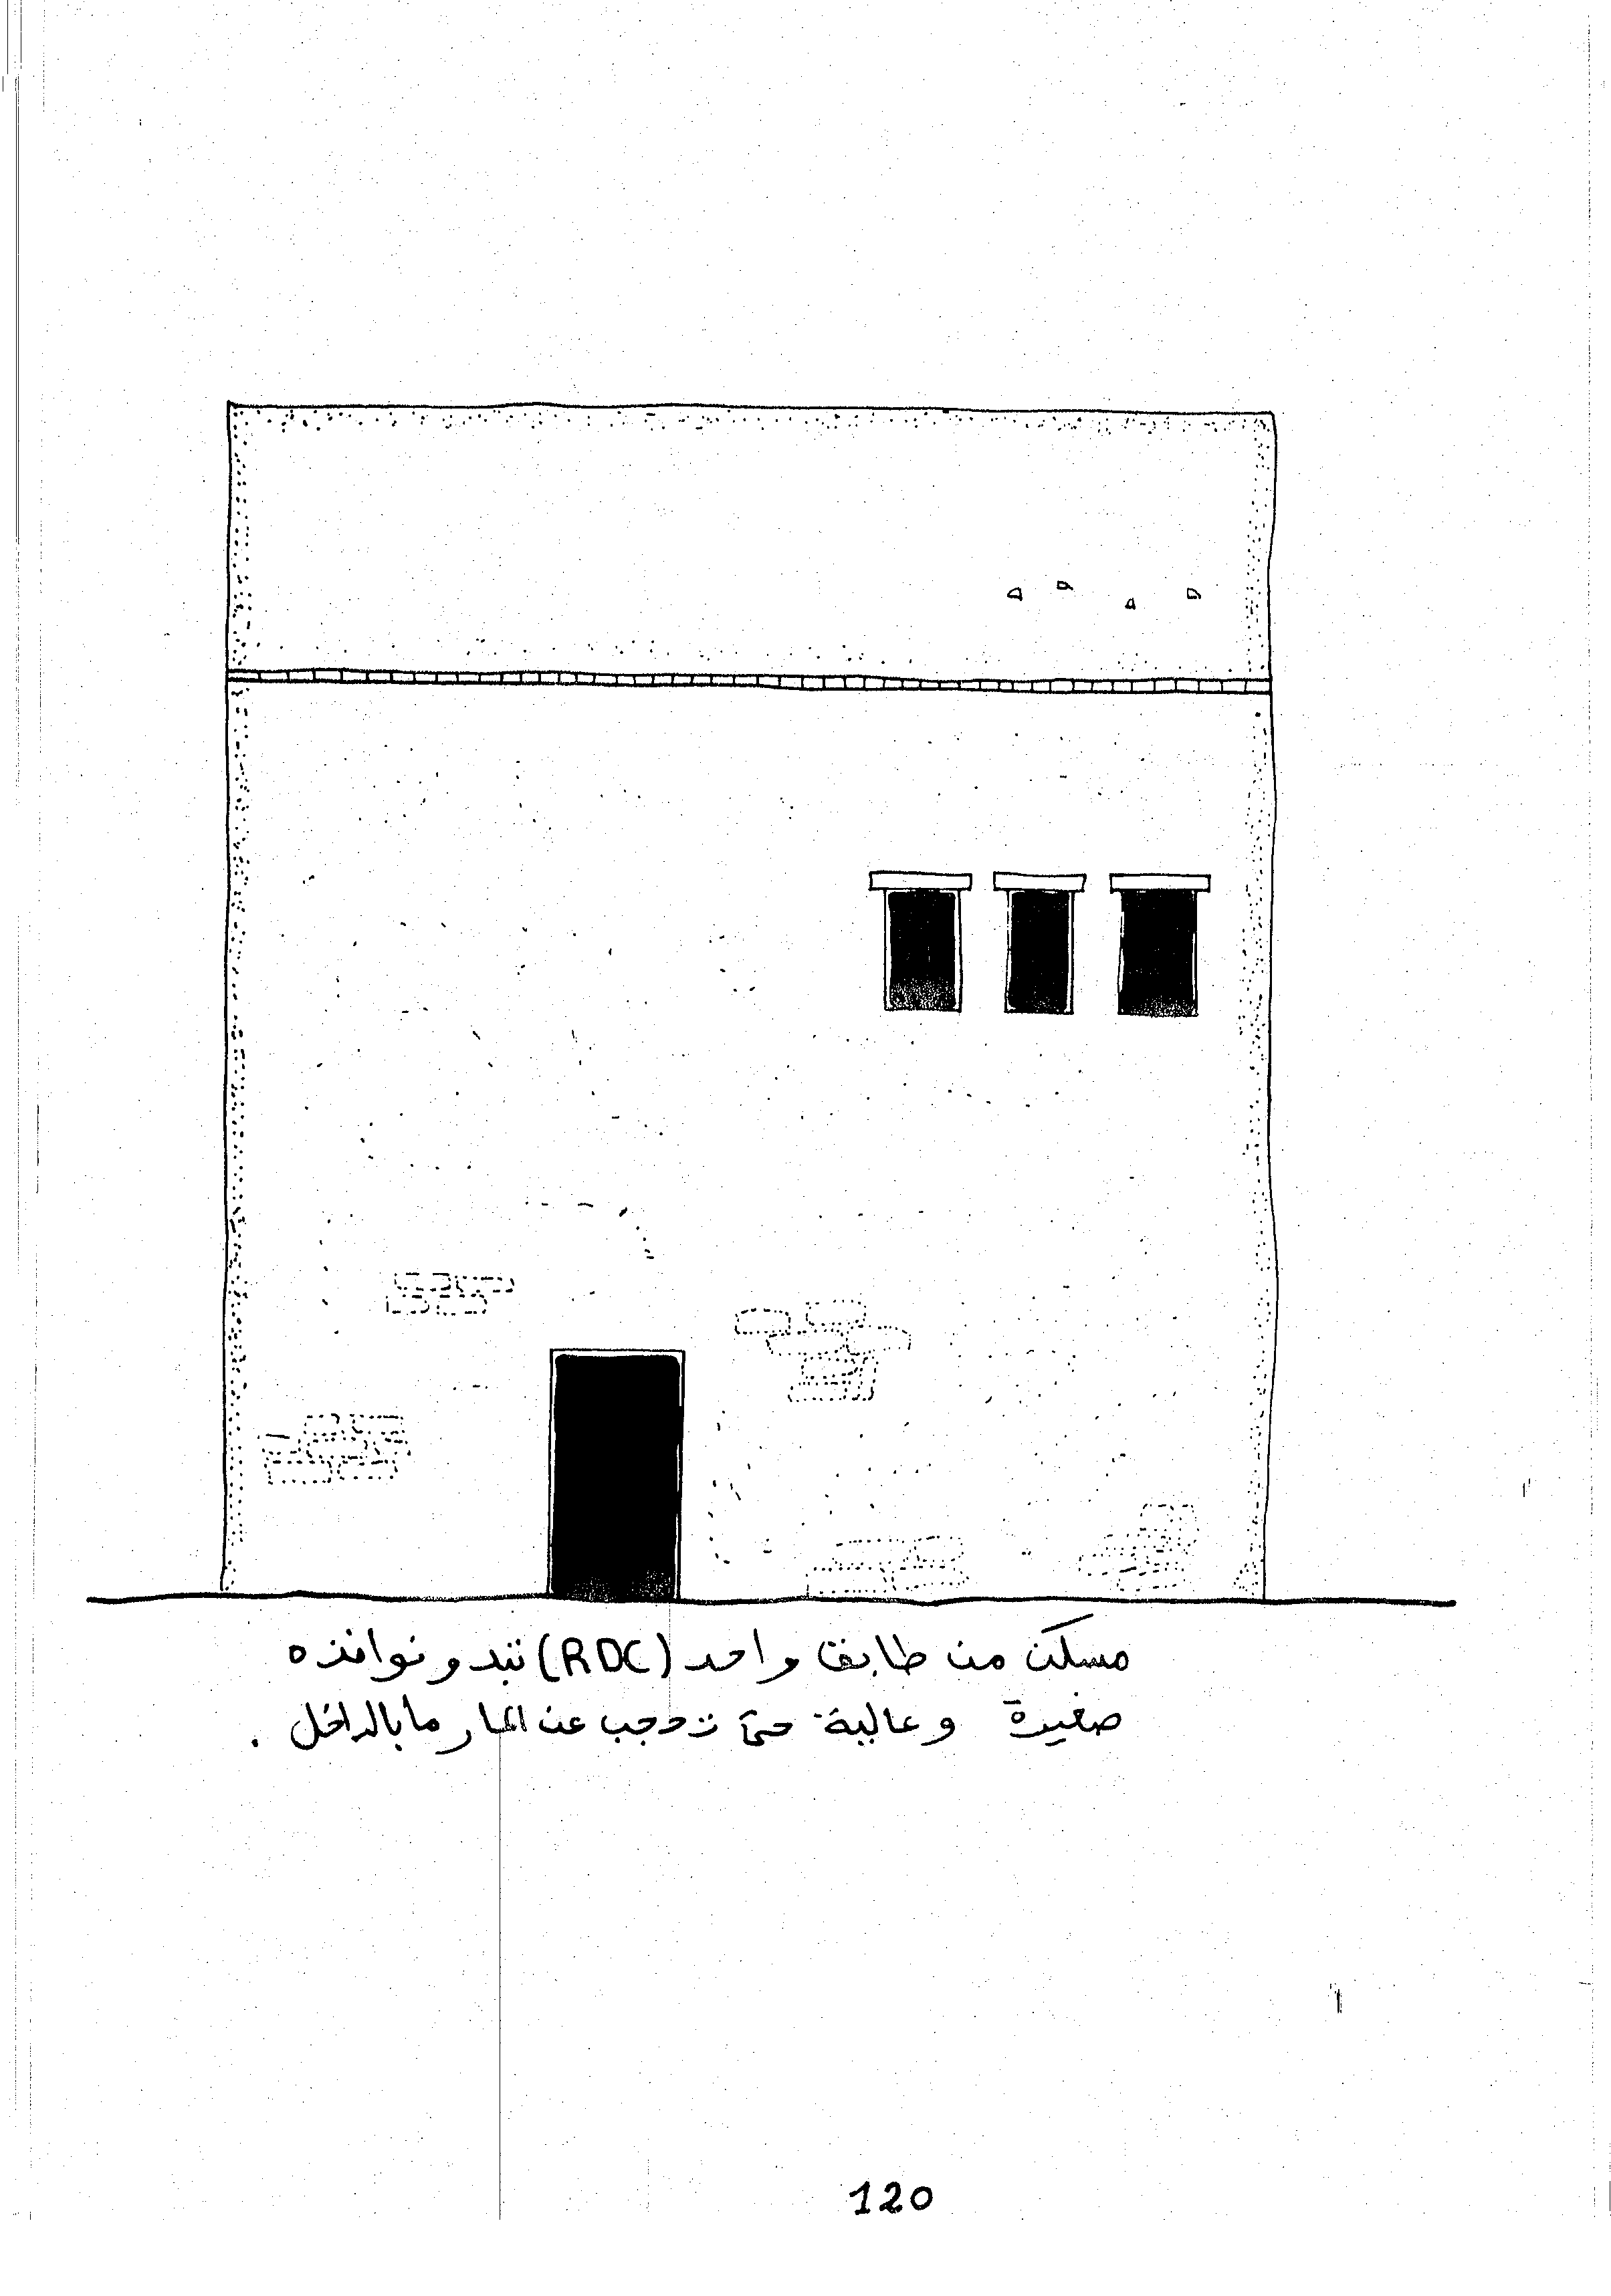 مسكن من طابق واحد (RDC) تبدو نوافذه
صغيرة وعالية حتى تحجب عن المار ما بالداخل .
120